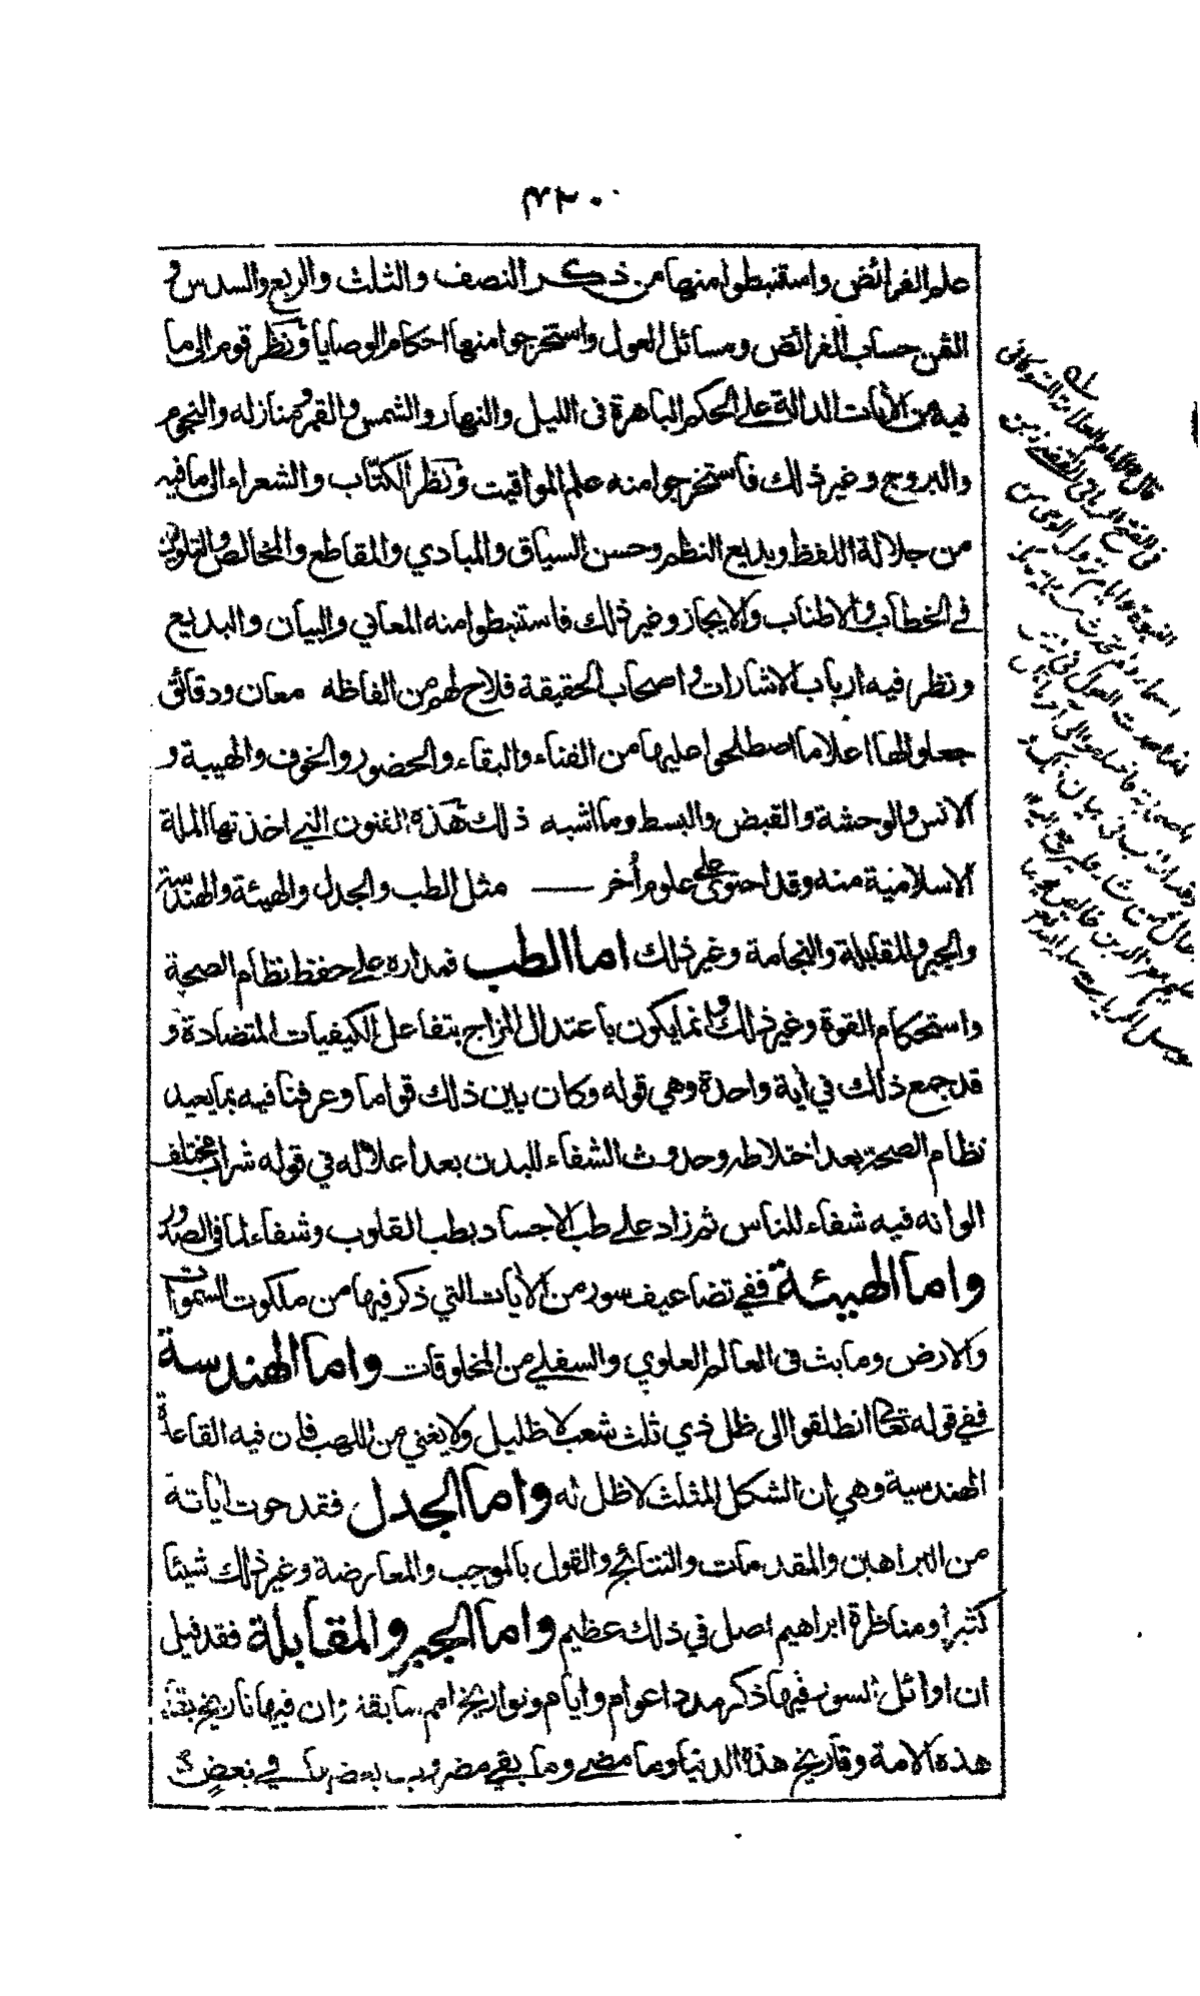 ٤٢٠
علم الفرائض واستنبطوا منها من ذكر النصف والثلث والربع والسدس و
الثمن حساب الفرائض ومسائل العول واستخرجوا منها احكام الوصايا ونظر قوم الى ما
فيه من الآيات الدالة على الحكم الباهرة في الليل والنهار والشمس والقمر ومنازله والنجوم
والبروج وغير ذلك فاستخرجوا منه علم المواقيت ونظر الكتاب والشعراء الى ما فيه
من جلالة اللفظ وبديع النظم وحسن السياق والمبادي والمقاطع والمخالص والتلوين
في الخطاب والاطناب والايجاز وغير ذلك فاستنبطوا منه المعاني والبيان والبديع
ونظر فيه ارباب الاشارات واصحاب الحقيقة فلاح لهم من الفاظه معان ودقائق
جعلوا لها اعلاما اصطلحوا عليها من الفناء والبقاء والحضور والخوف والهيبة و
الانس والوحشة والقبض والبسط وما اشبه ذلك هذه الفنون التي اخذتها الملة
الاسلامية منه وقد احتوى على علوم أخر — مثل الطب والجدل والهيئة والهندسة
والجبر والمقابلة والنجامة وغير ذلك اما الطب فمداره على حفظ نظام الصحة
واستحكام القوة وغير ذلك وانما يكون باعتدال المزاج بتفاعل الكيفيات المتضادة و
قد جمع ذلك في آية واحدة وهي قوله وكان بين ذلك قواما وعرفنا فيه بما يعيد
نظام الصحة بعد اختلاطه وحدوث الشفاء للبدن بعد اعلاله في قوله شراب مختلف
الوانه فيه شفاء للناس ثم زاد على طب الاجساد بطب القلوب وشفاء لما في الصدور
واما الهيئة ففي تضاعيف سور من الآيات التي ذكر فيها من ملكوت السموات
والارض وما بث في العالم العلوي والسفلي من المخلوقات واما الهندسة
ففي قوله تعالى انطلقوا الى ظل ذي ثلث شعب لا ظليل ولا يغني من اللهب فان فيه القاعدة
الهندسية وهي ان الشكل المثلث لا ظل له واما الجدل فقد حوت آياته
من البراهين والمقدمات والنتائج والقول بالموجب والمعارضة وغير ذلك شيئا
كثيرا ومناظرة ابراهيم اصل في ذلك عظيم واما الجبر والمقابلة فقد قيل
ان اوائل السور فيها ذكر مدد اعوام وايام وتواريخ امم سابقة وان فيها تاريخ بقاء
هذه الامة وتاريخ هذه الدنيا وما مضى وما بقي مضروب بعضها في بعض
قال الامام العلامة الشوكاني
في الفتح الرباني